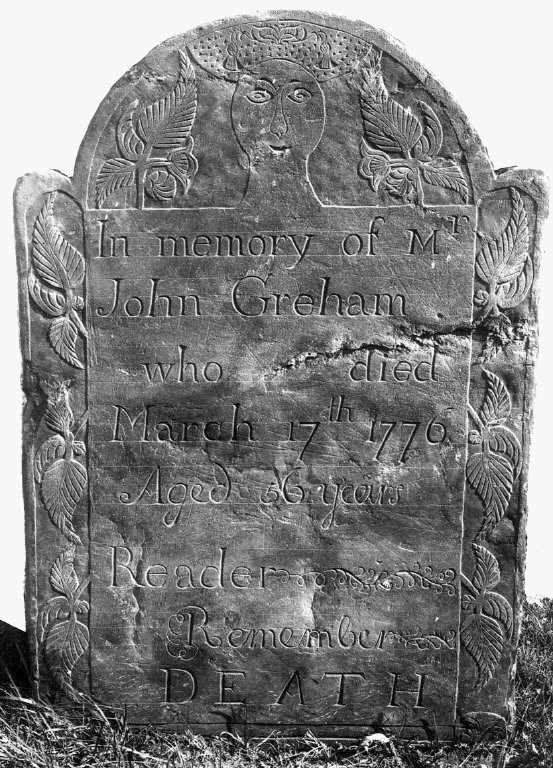 In memory of Mr
John Greham
who died
March 17th 1776
Aged 56 years
Reader
Remember
DEATH